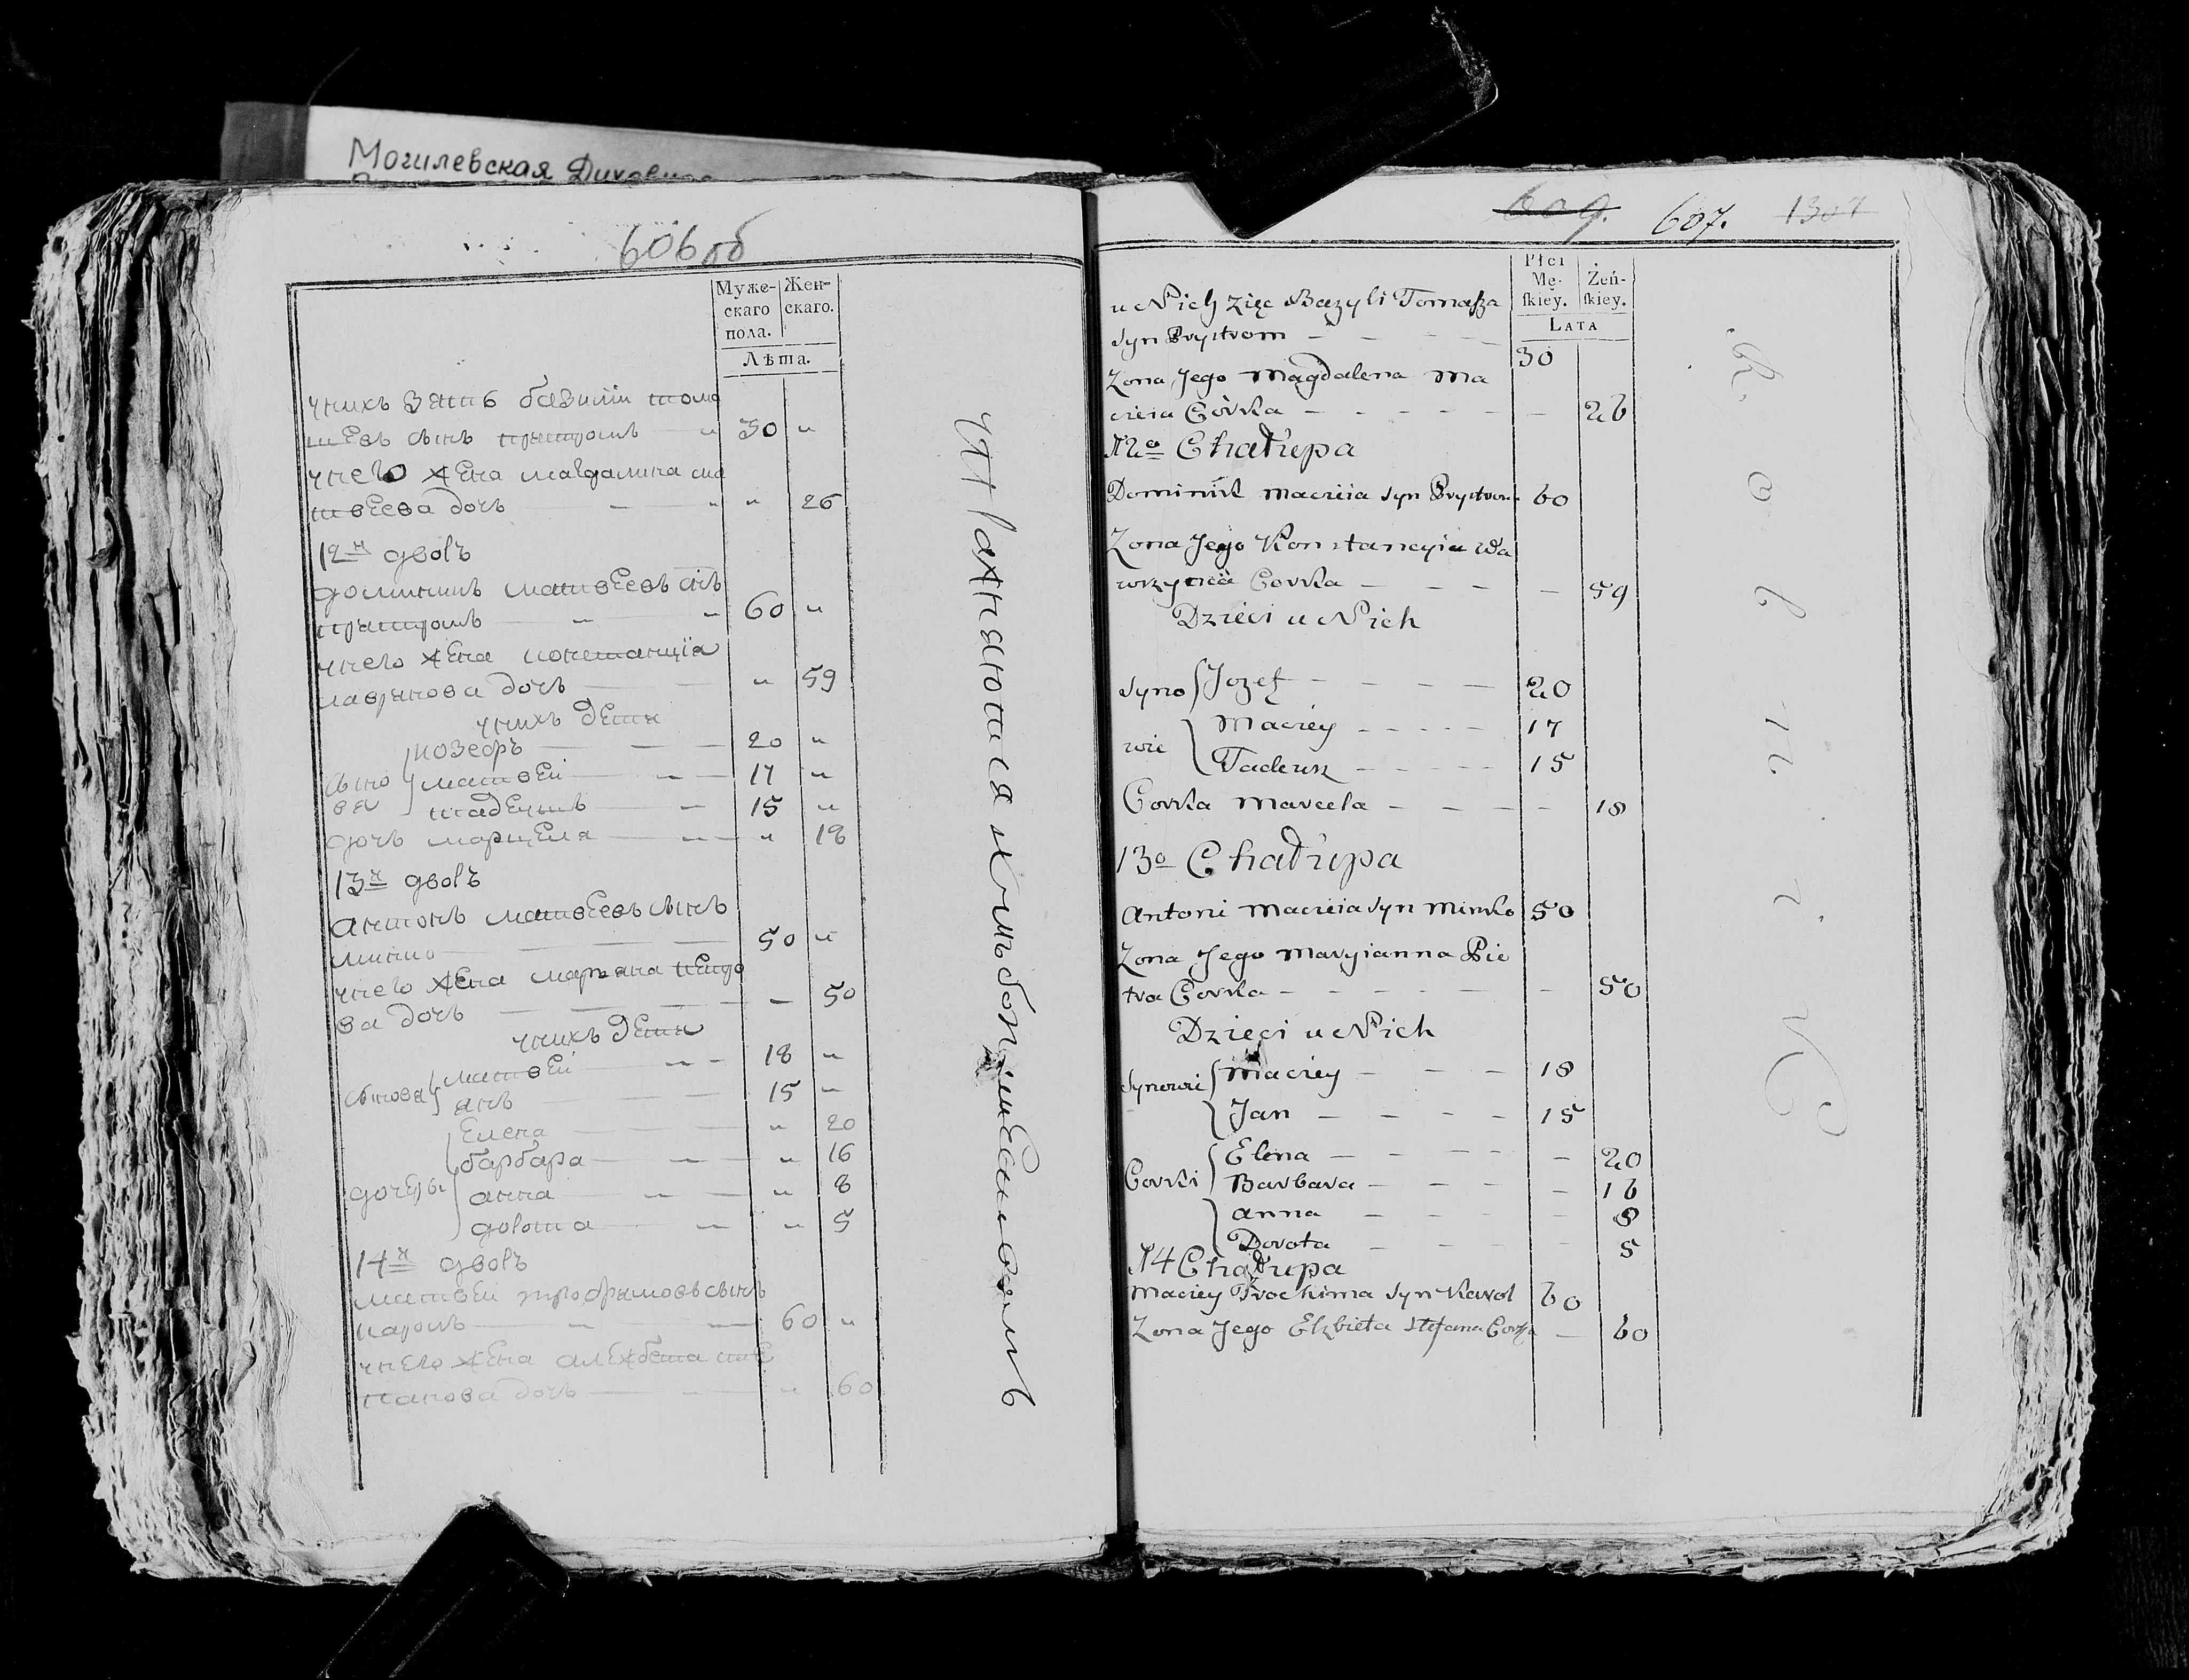 Могилевская Духовная
606 об
Муже-
скаго
пола.
Жен-
скаго.
Лѣта.
унихъ зять базилiи тома
шевъ сынъ 30 "
унего жена магдалина ма
твеева дочь " 26
12й дворъ
доминикъ матвеевъ снъ
60 "
унего жена констанцiа
лаврынова дочь " 59
унихъ дети
иозефъ 20 "
сыно матвеи 17 "
вя тадеушъ 15 "
дочь марцеля " 18
13й дворъ
антонъ матвеевъ сынъ
минко 50 "
унего жена марьяна петро
ва дочь 50
унихъ дети
матвеи 18 "
сыновя
янъ 15 "
Елена " 20
барбара " 16
дочеры анна " 8
дорота " 5
14й дворъ
матвеи трофимовъ сынъ
кароль 60 "
унего жена алежбета сте
панова дочь " 60
609. 607. 1307
Płci
Mę-
skiey.
Żeń-
skiey.
LATA
u Nich zięc Bazyli Tomasza
syn 30
Zona Jego Magdalena Ma
cieia Córka 26
12o Chałupa
Dominik Macieia syn 60
Zona Jego Konstancyia Wa
wrzynca Corka 59
Dzieci u Nich
Syno Jozef 20
wie Maciey 17
Tadeusz 15
Corka Marcela 18
13o Chałupa
Antoni Macieia syn Minko 50
Zona Jego Maryianna Pie
tra Corka 50
Dzieci u Nich
Synowie Maciey 18
Jan 15
Elena 20
Corki Barbara 16
Anna 8
Dorota 5
14 Chałupa
Maciey Trochima syn Karol 60
Zona Jego Elzbieta Stefana Corka 60